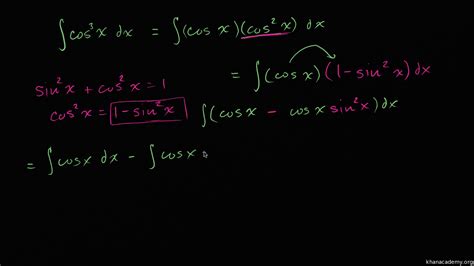 ∫cos³x dx = ∫(cos x)(cos²x) dx
= ∫(cos x)(1-sin²x)dx
sin²x + cos²x = 1
cos²x = 1-sin²x
∫(cos x - cos x sin²x)dx
= ∫cosx dx - ∫cosx
khanacademy.org